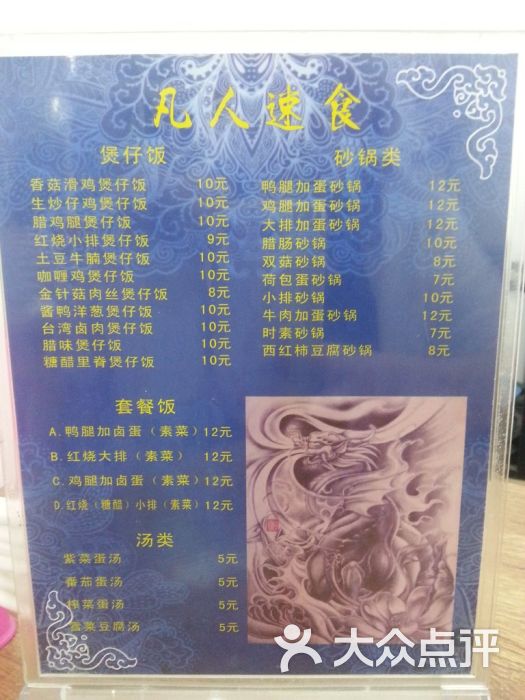 凡人速食
煲仔饭
香菇滑鸡煲仔饭 10元
生炒仔鸡煲仔饭 10元
腊鸡腿煲仔饭 10元
红烧小排煲仔饭 9元
土豆牛腩煲仔饭 10元
咖喱鸡煲仔饭 10元
金针菇肉丝煲仔饭 8元
酱鸭洋葱煲仔饭 10元
台湾卤肉煲仔饭 10元
腊味煲仔饭 10元
糖醋里脊煲仔饭 10元
砂锅类
鸭腿加蛋砂锅 12元
鸡腿加蛋砂锅 12元
大排加蛋砂锅 12元
腊肠砂锅 10元
双菇砂锅 8元
荷包蛋砂锅 7元
小排砂锅 10元
牛肉加蛋砂锅 12元
时素砂锅 7元
西红柿豆腐砂锅 8元
套餐饭
A.鸭腿加卤蛋（素菜）12元
B.红烧大排（素菜） 12元
C.鸡腿加卤蛋（素菜）12元
D.红烧（糖醋）小排（素菜）12元
汤类
紫菜蛋汤 5元
番茄蛋汤 5元
榨菜蛋汤 5元
雪菜豆腐汤 5元
大众点评